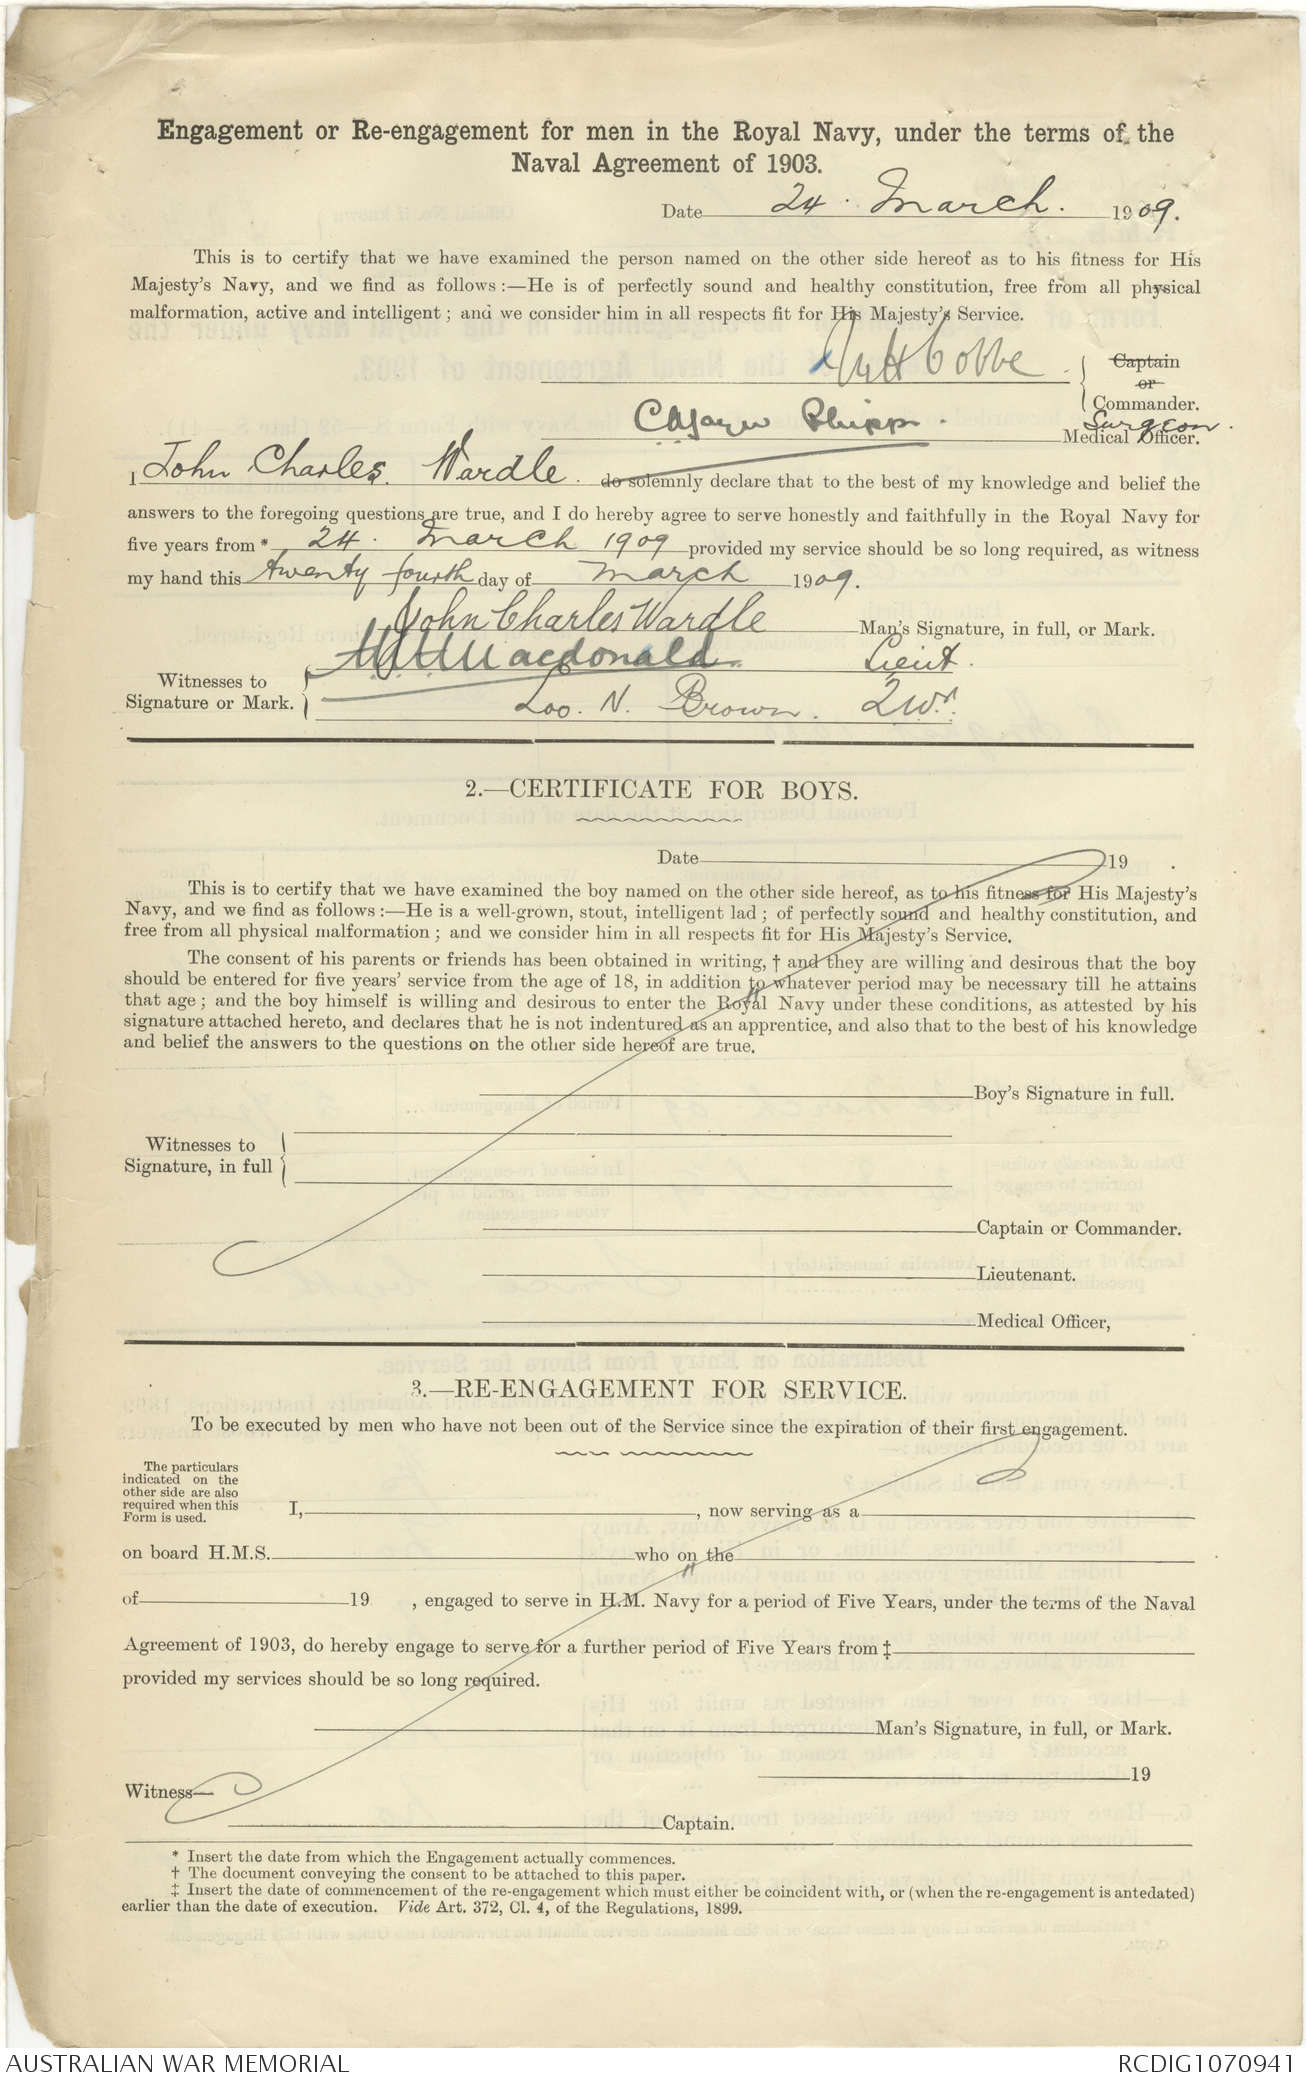 Engagement or Re-engagement for men in the Royal Navy, under the terms of the
Naval Agreement of 1903.
Date 24 March. 1909.
This is to certify that we have examined the person named on the other side hereof as to his fitness for His
Majesty's Navy, and we find as follows:—He is of perfectly sound and healthy constitution, free from all physical
malformation, active and intelligent; and we consider him in all respects fit for His Majesty's Service.
Cobbe
Captain
or
Commander.
Phipps
Surgeon.
Medical Officer.
I John Charles Wardle do solemnly declare that to the best of my knowledge and belief the
answers to the foregoing questions are true, and I do hereby agree to serve honestly and faithfully in the Royal Navy for
five years from * 24. March 1909 provided my service should be so long required, as witness
my hand this twenty fourth day of March 1909.
John Charles Wardle Man's Signature, in full, or Mark.
Macdonald Lieut.
Witnesses to
Signature or Mark.
N. Brown.
2.—CERTIFICATE FOR BOYS.
Date 19 .
This is to certify that we have examined the boy named on the other side hereof, as to his fitness for His Majesty's
Navy, and we find as follows:—He is a well-grown, stout, intelligent lad; of perfectly sound and healthy constitution, and
free from all physical malformation; and we consider him in all respects fit for His Majesty's Service.
The consent of his parents or friends has been obtained in writing, † and they are willing and desirous that the boy
should be entered for five years' service from the age of 18, in addition to whatever period may be necessary till he attains
that age; and the boy himself is willing and desirous to enter the Royal Navy under these conditions, as attested by his
signature attached hereto, and declares that he is not indentured as an apprentice, and also that to the best of his knowledge
and belief the answers to the questions on the other side hereof are true.
Boy's Signature in full.
Witnesses to
Signature, in full
Captain or Commander.
Lieutenant.
Medical Officer,
3.—RE-ENGAGEMENT FOR SERVICE.
To be executed by men who have not been out of the Service since the expiration of their first engagement.
The particulars
indicated on the
other side are also
required when this
Form is used.
I, , now serving as a
on board H.M.S. who on the
of 19 , engaged to serve in H.M. Navy for a period of Five Years, under the terms of the Naval
Agreement of 1903, do hereby engage to serve for a further period of Five Years from ‡
provided my services should be so long required.
Man's Signature, in full, or Mark.
19
Witness—
Captain.
* Insert the date from which the Engagement actually commences.
† The document conveying the consent to be attached to this paper.
‡ Insert the date of commencement of the re-engagement which must either be coincident with, or (when the re-engagement is antedated)
earlier than the date of execution. Vide Art. 372, Cl. 4, of the Regulations, 1899.
AUSTRALIAN WAR MEMORIAL
RCDIG1070941